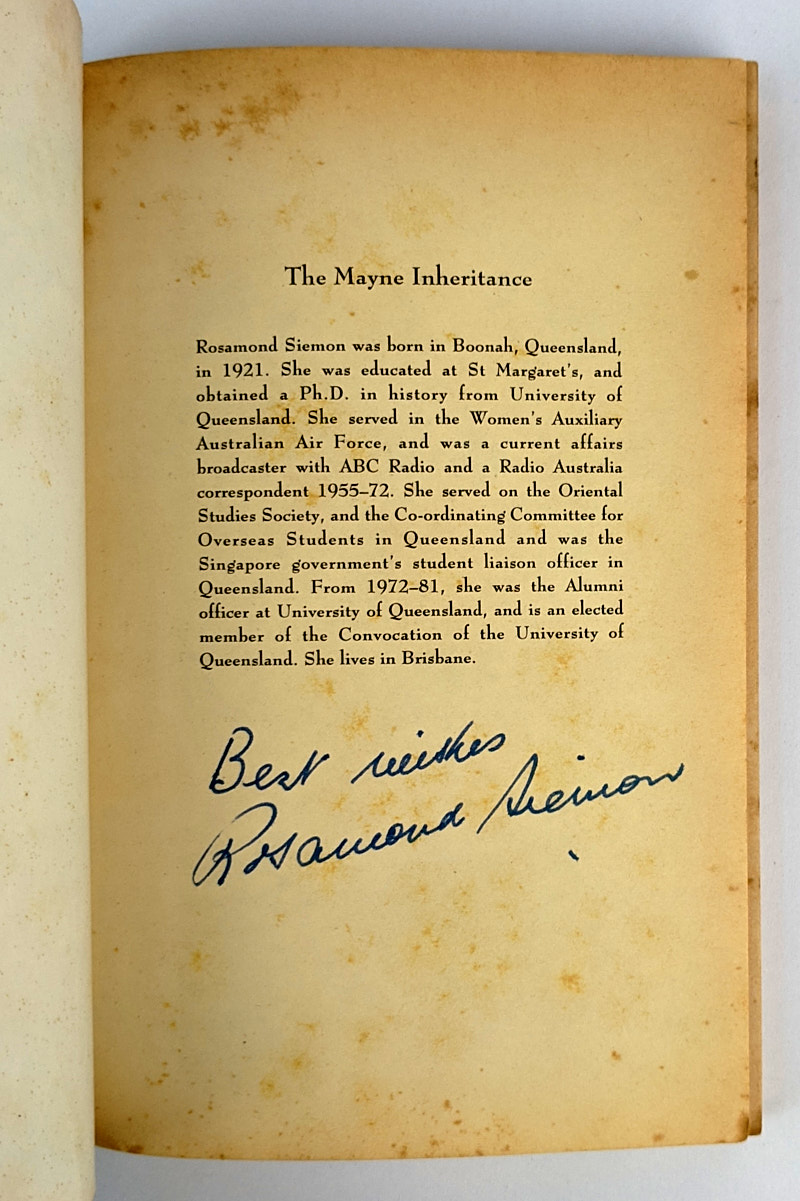 The Mayne Inheritance
Rosamond Siemon was born in Boonah, Queensland,
in 1921. She was educated at St Margaret's, and
obtained a Ph.D. in history from University of
Queensland. She served in the Women's Auxiliary
Australian Air Force, and was a current affairs
broadcaster with ABC Radio and a Radio Australia
correspondent 1955–72. She served on the Oriental
Studies Society, and the Co-ordinating Committee for
Overseas Students in Queensland and was the
Singapore government's student liaison officer in
Queensland. From 1972–81, she was the Alumni
officer at University of Queensland, and is an elected
member of the Convocation of the University of
Queensland. She lives in Brisbane.
Best wishes
Rosamond Siemon